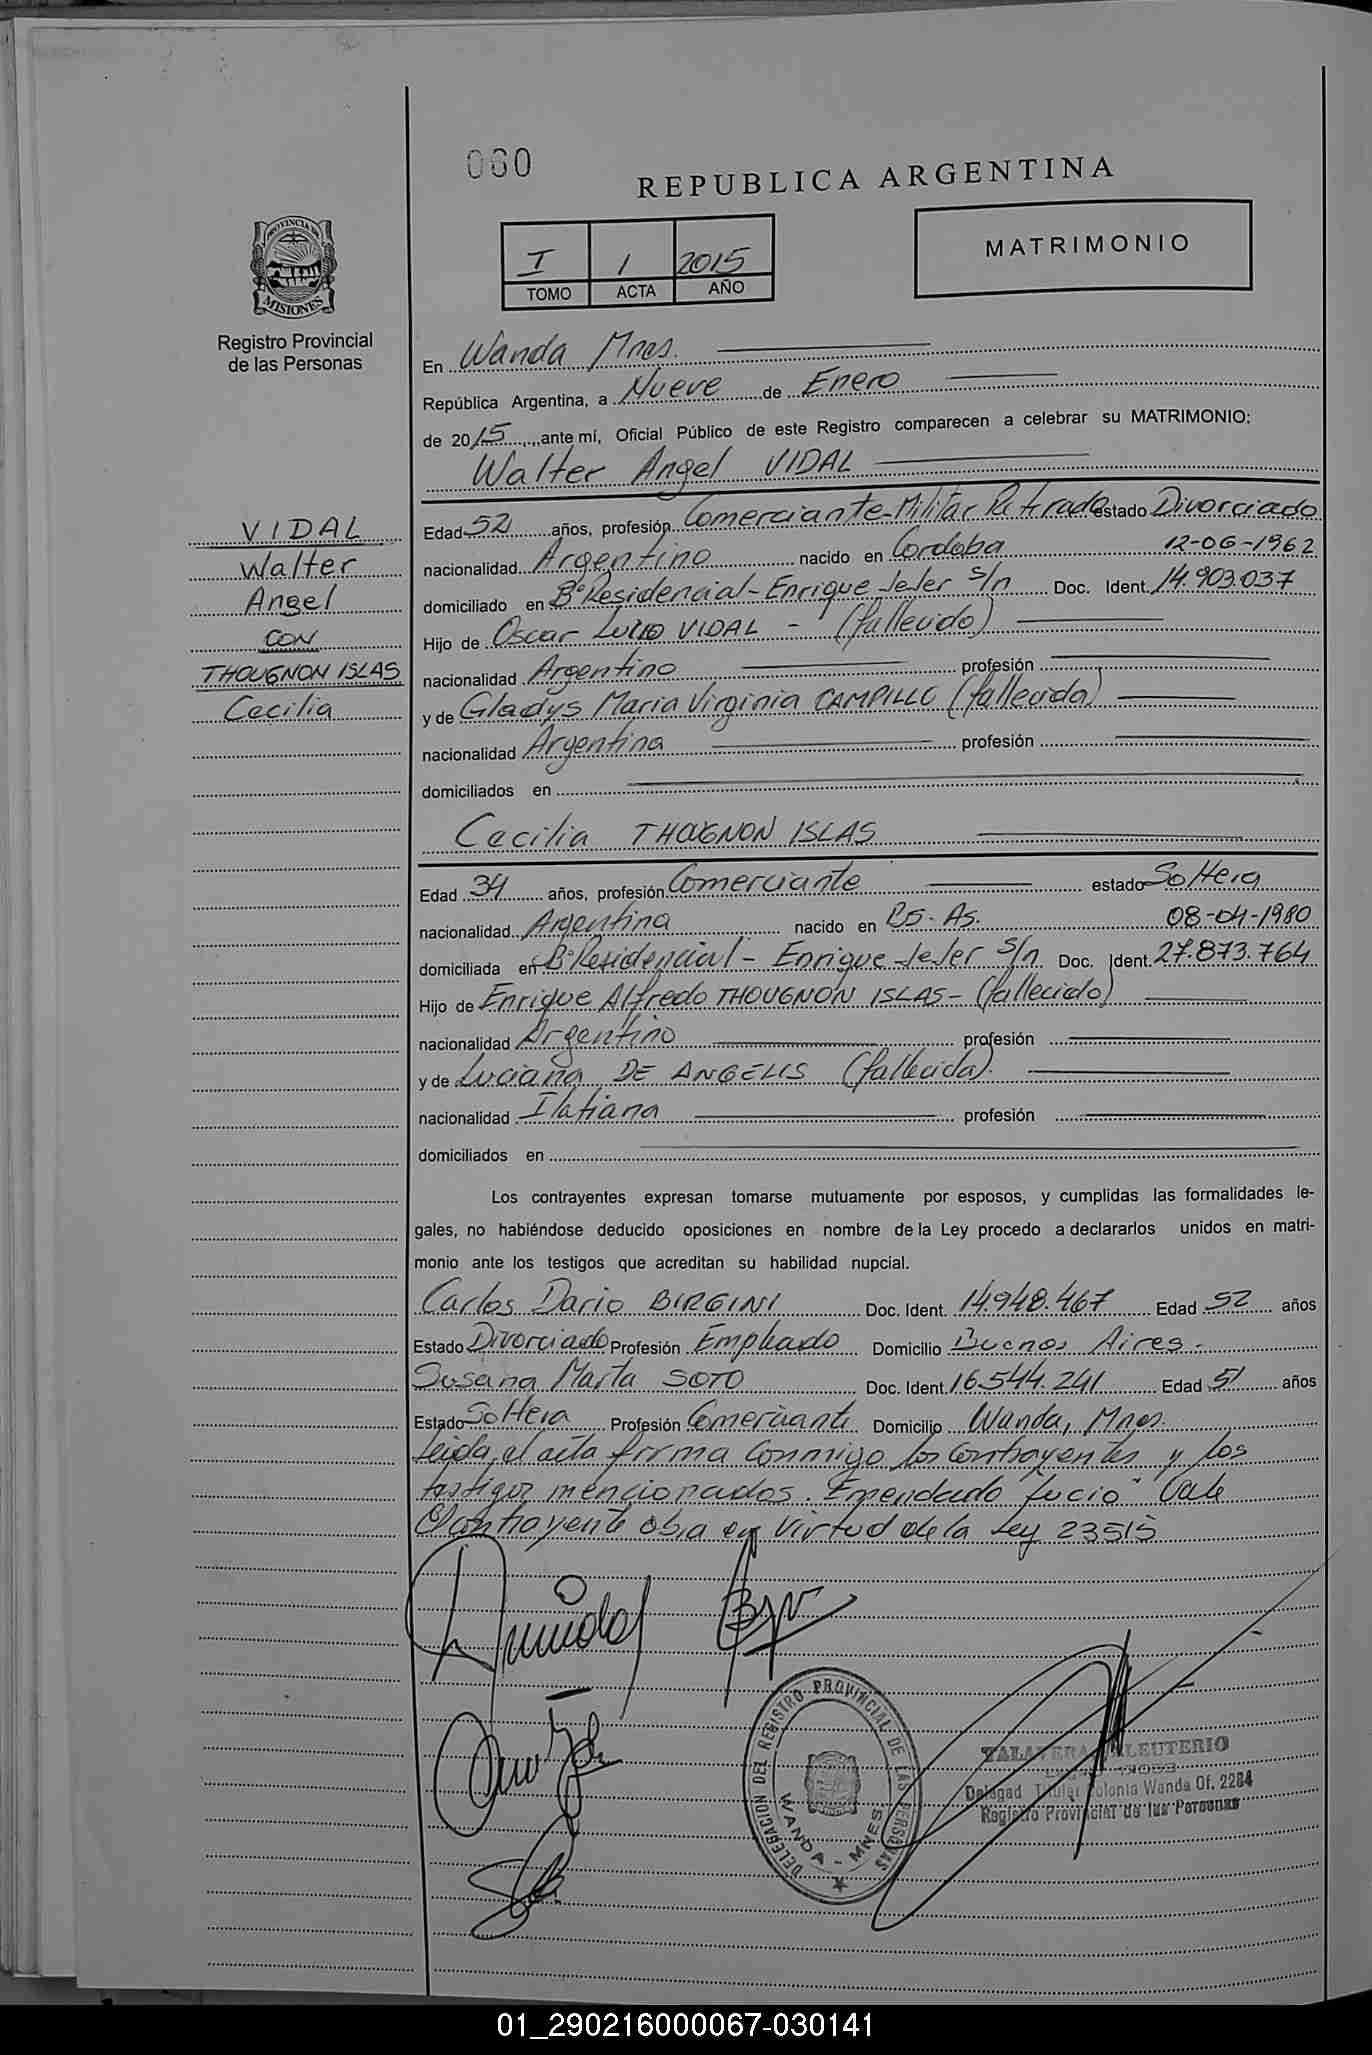 060
REPUBLICA ARGENTINA
PROVINCIA DE
MISIONES
Registro Provincial
de las Personas
I 1 2015
TOMO ACTA AÑO
MATRIMONIO
VIDAL
Walter
Angel
CON
THOUGNON ISLAS
Cecilia
En Wanda Mnes.
República Argentina, a Nueve de Enero
de 2015, ante mí, Oficial Público de este Registro comparecen a celebrar su MATRIMONIO:
Walter Angel VIDAL
Edad 52 años, profesión Comerciante-Militar Retirado estado Divorciado
nacionalidad Argentino nacido en Cordoba 12-06-1962
domiciliado en B° Residencial - Enrique Jeler s/n Doc. Ident. 14.903.037
Hijo de Oscar Lucio VIDAL - (fallecido)
nacionalidad Argentino profesión
y de Gladys Maria Virginia CAMPILLO (fallecida)
nacionalidad Argentina profesión
domiciliados en
Cecilia THOUGNON ISLAS
Edad 34 años, profesión Comerciante estado Soltera
nacionalidad Argentina nacido en Bs. As. 08-04-1980
domiciliada en B° Residencial - Enrique Jeler s/n Doc. Ident. 27.873.764
Hijo de Enrique Alfredo THOUGNON ISLAS - (fallecido)
nacionalidad Argentino profesión
y de Luciana DE ANGELIS (fallecida).
nacionalidad Italiana profesión
domiciliados en
Los contrayentes expresan tomarse mutuamente por esposos, y cumplidas las formalidades le-
gales, no habiéndose deducido oposiciones en nombre de la Ley procedo a declararlos unidos en matri-
monio ante los testigos que acreditan su habilidad nupcial.
Carlos Dario BIRGINI Doc. Ident. 14.948.467 Edad 52 años
Estado Divorciado Profesión Empleado Domicilio Buenos Aires.
Susana Marta SOTO Doc. Ident. 16.544.241 Edad 51 años
Estado Soltera Profesión Comerciante Domicilio Wanda, Mnes.
Leida, el acta firma conmigo los contrayentes y los
testigos mencionados. Emendado "Lucio" Vale
Contrayente obra en virtud de la Ley 23515
DELEGACION DEL REGISTRO PROVINCIAL DE LAS PERSONAS
WANDA - MNES
TALAVERA ELEUTERIO
Delegad Titular Colonia Wanda Of. 2284
Registro Provincial de las Personas
01_290216000067-030141